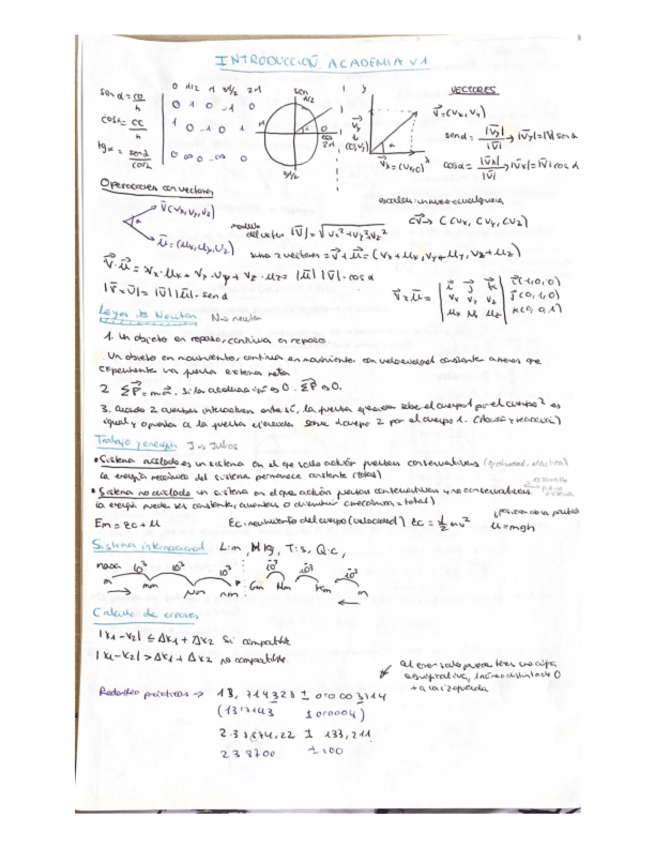 INTRODUCCIÓN ACADEMIA V1
sen α = co/h
cos α = cc/h
tg α = sen α/cos α
0 π/2 π 3π/2 2π
0 1 0 -1 0
1 0 -1 0 1
0 ∞ 0 -∞ 0
sen
π/2
π
0
cos
2π
3π/2
VECTORES
V⃗=(Vx,Vy)
sen α = |Vy|/|V| → |Vy|=|V| sen α
cos α = |Vx|/|V| → |Vx|=|V| cos α
Vx=(Vx,0)
Operaciones con vectores
V(Vx,Vy,Vz)
u=(ux,uy,uz)
|V|=√Vx²+Vy²+Vz²
CV→ C(CVx, CVy, CVz)
suma 2 vectores = V+u = (Vx+ux, Vy+uy, Vz+uz)
V·u = Vx·ux + Vy·uy + Vz·uz = |u| |V|·cos α
|V×u|= |V| |u|·sen α
V×u =
i j k
Vx Vy Vz
ux uy uz
i(1,0,0)
j(0,1,0)
k(0,0,1)
Leyes de Newton N→ newton
1. Un objeto en reposo, continua en reposo
Un objeto en movimiento, continua en movimiento con velocidad constante a menos que
experimente una fuerza externa neta
2 ΣF=m·a. Si la aceleración es 0 ΣF es 0.
3. Cuando 2 cuerpos interactuan entre sí, la fuerza ejercida sobre el cuerpo 1 por el cuerpo 2 es
igual y opuesta a la fuerza ejercida sobre el cuerpo 2 por el cuerpo 1. (Acción y reacción)
Trabajo y energía J→ Julios
• Sistema aislado es un sistema en el que solo actúan fuerzas conservativas (gravedad, elástica)
La energía mecánica del sistema permanece constante (total)
• Sistema no aislado un sistema en el que actúan fuerzas conservativas y no conservativas.
la energía puede ser constante, aumentar o disminuir (mecánica = total)
Em = Ec + U
Ec: movimiento del cuerpo (velocidad) Ec = ½ mv²
U=mgh
Sistema internacional L:m, M:kg, T:s, Q:C,
Calculo de errores
|x1-x2| ≤ Δx1 + Δx2 Si compatible
|x1-x2| > Δx1 + Δx2 no compatible
Redondeo prácticos →
(13'7143 ± 0'0004)
± 133,211
238700 ±100